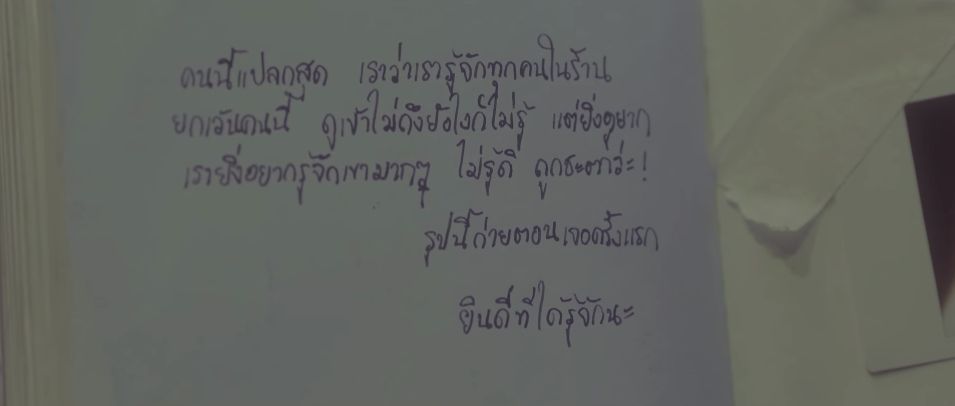 คนนี้แปลกสุด เราว่าเรารู้จักทุกคนในร้าน
ยกเว้นคนนี้ ดูเข้าไม่ถึงยังไงก็ไม่รู้ แต่ยิ่งดูยาก
เรายิ่งอยากรู้จักเขามากๆ ไม่รู้ดิ ถูกชะตาว่ะ!
รูปนี้ถ่ายตอนเจอครั้งแรก
ยินดีที่ได้รู้จักนะ